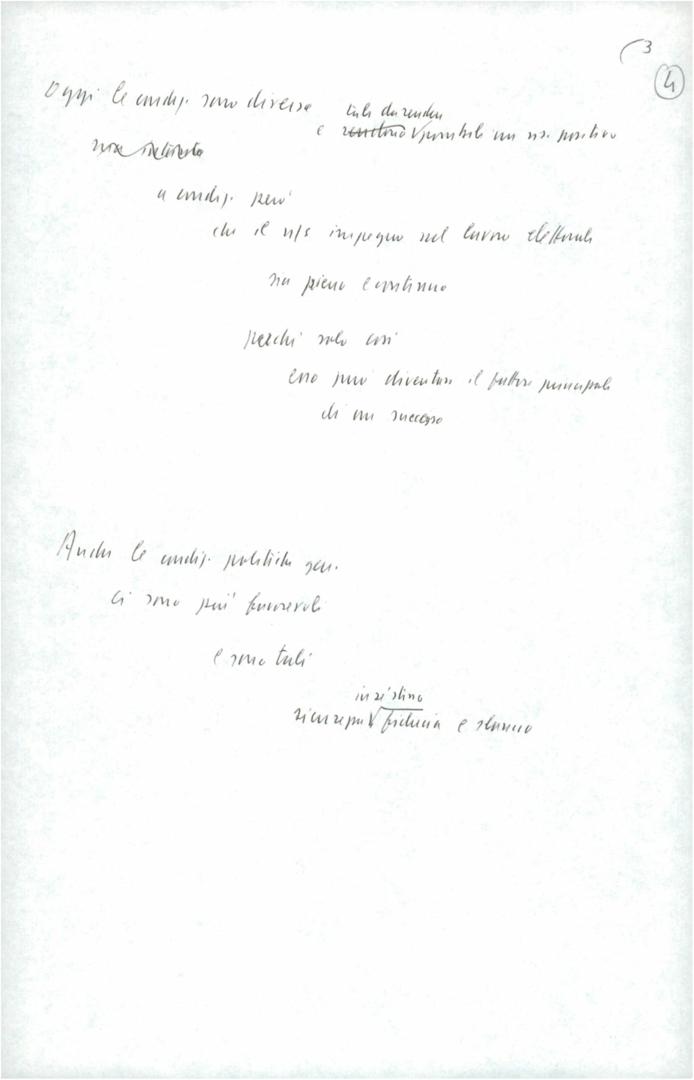 3
4
Oggi le condiz. sono diverse
tali da rendere
e possibile un ris. positivo
a condiz. però
che il n/s impegno nel lavoro elettorale
sia pieno e continuo
perché solo così
esso può diventare il fattore principale
di un successo
Anche le condiz. politiche gen.
ci sono più favorevoli
e sono tali
insistino
fiducia e slancio